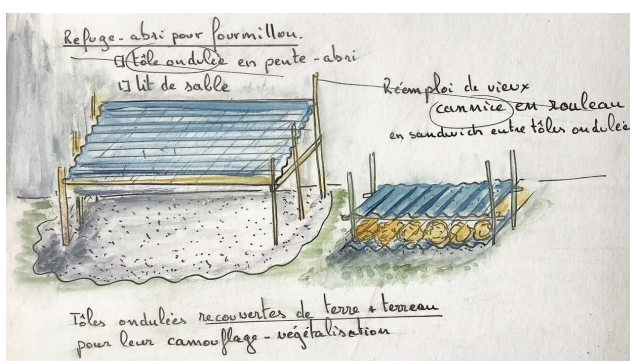 Refuge-abri pour fourmilion.
tôle ondulée en pente-abri
lit de sable
Réemploi de vieux
cannice en rouleau
en sandwich entre tôles ondulée
Tôles ondulées recouvertes de terre + terreau
pour leur camouflage - végétalisation